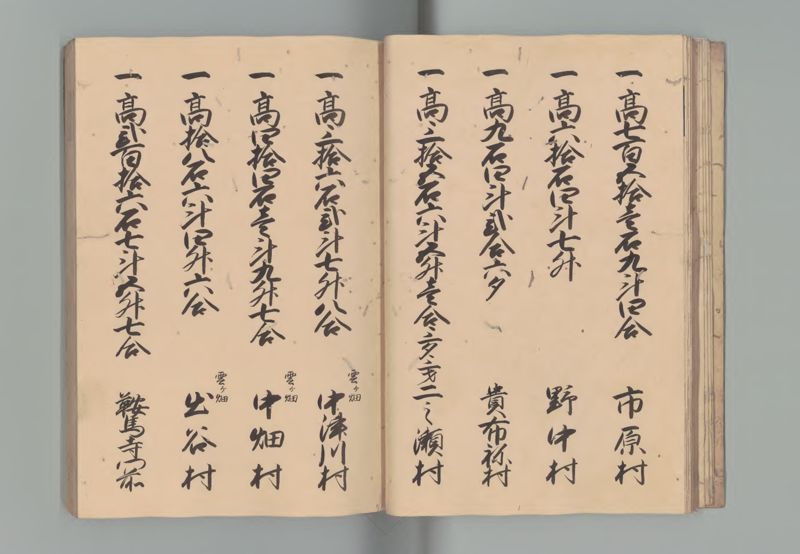 一 高七百五拾壱石九斗四合 市原村
一 高六拾石四斗七升 野中村
一 高九石四斗弐合六夕 貴布祢村
一 高三拾五石六斗五升壱合三夕三才 二之瀬村
一 高三拾六石弐斗七升八合 雲ケ畑 中津川村
一 高四拾四石壱斗九升七合 雲ケ畑 中畑村
一 高拾八石六斗四升六合 雲ケ畑 出谷村
一 高弐百拾六石七斗五升七合 鞍馬寺門前